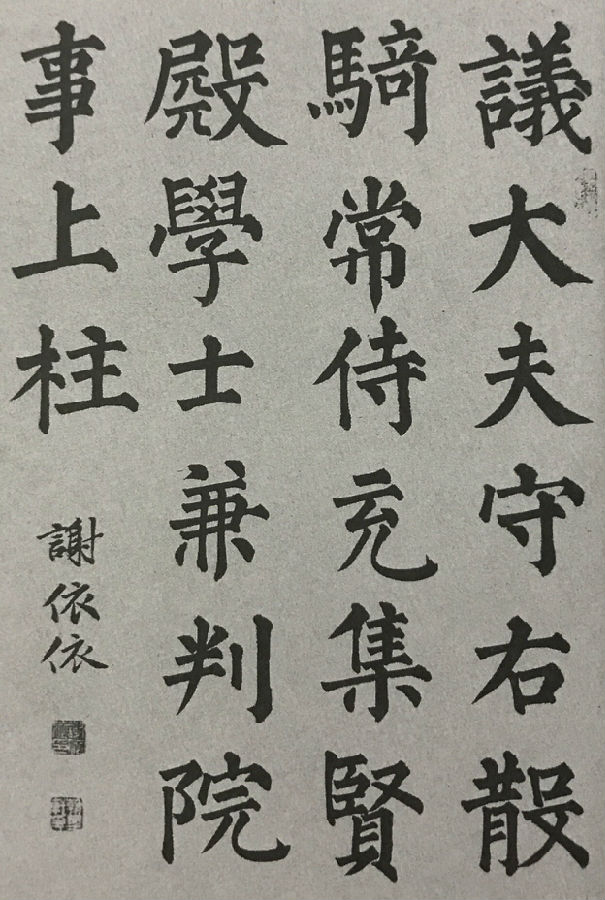 議大夫守右散
騎常侍充集賢
殿學士兼判院
事上柱
謝依依